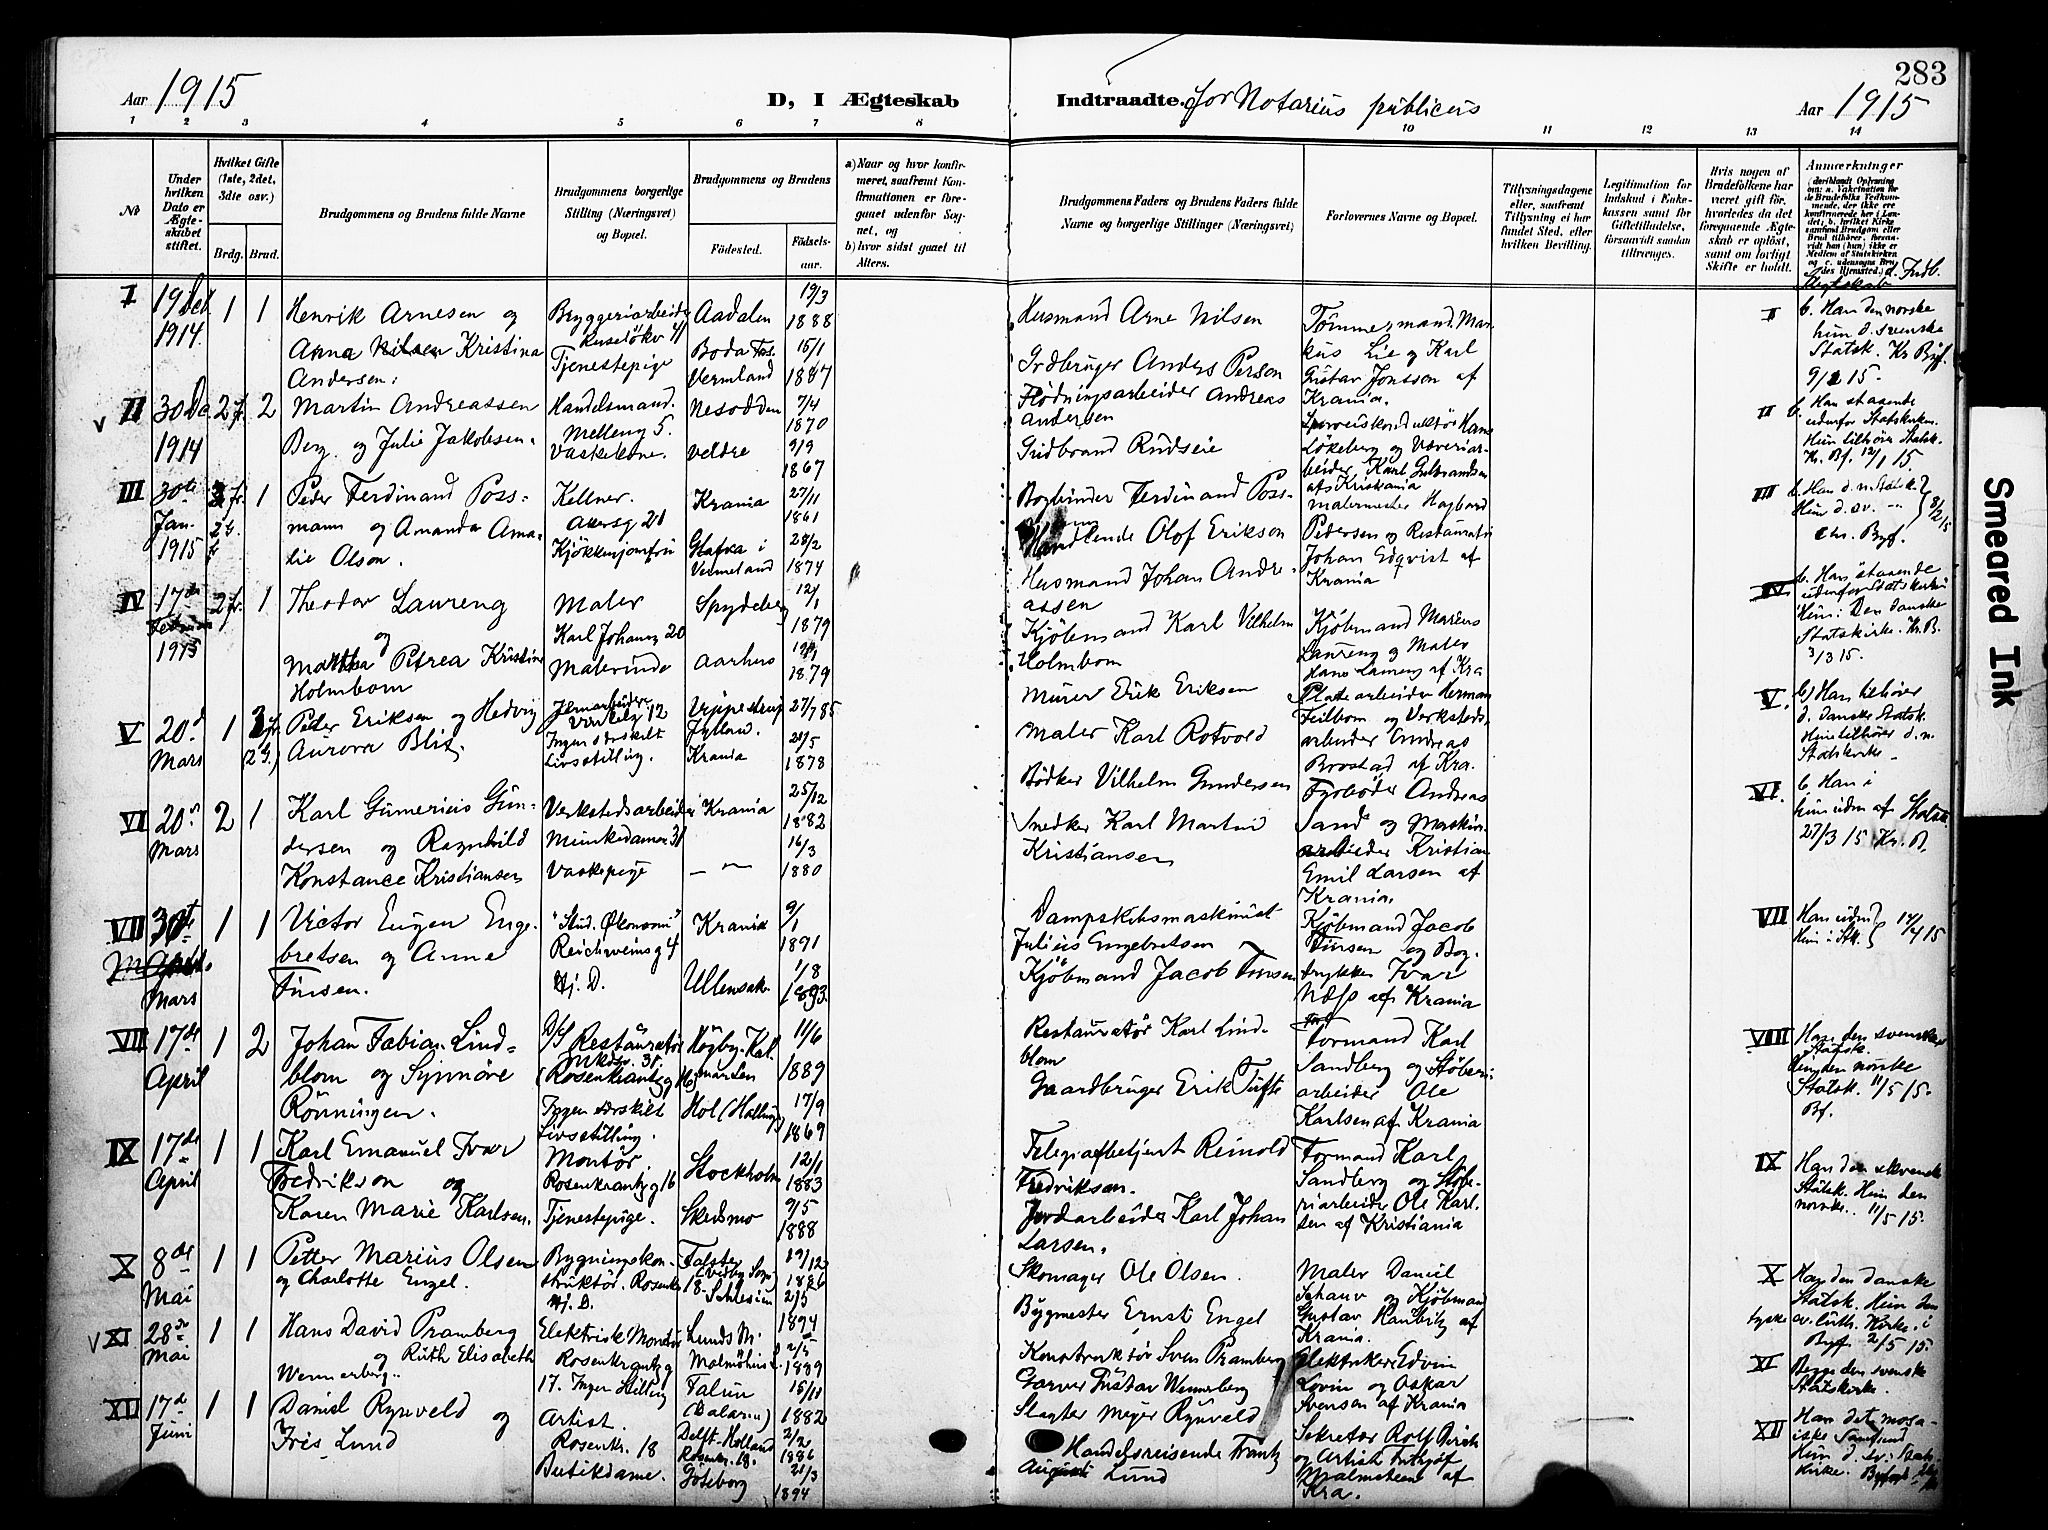 283
Aar 1915
D, I Ægteskab Indtraadte. for Notarius publicus
Aar 1915
1 2 3 4 5 6 7 8 10 11 12 13 14
No
Under hvilken Dato er Ægteskabet stiftet.
Hvilket Gifte (1ste, 2det, 3dte osv.)
Brdg. Brud.
Brudgommens og Brudens fulde Navne
Brudgommens borgerlige Stilling (Næringsvei) og Bopæl.
Brudgommens og Brudens
Fødested. Fødselsaar.
a) Naar og hvor konfirmeret, saafremt Konfirmationen er foregaaet udenfor Sognet, og
b) hvor sidst gaaet til Alters.
Brudgommens Faders og Brudens Faders fulde Navne og borgerlige Stillinger (Næringsvei)
Forlovernes Navne og Bopæl.
Tillysningsdagene eller, saafremt Tillysning ei har fundet Sted, efter hvilken Bevilling.
Legitimation for Indskud i Enkekassen samt for Giftetilladelse, forsaavidt saadan tiltrænges.
Hvis nogen af Brudefolkene har været gift før, hvorledes da det foregaaende Ægteskab er opløst, samt om lovligt Skifte er holdt.
Anmærkninger
I
19 Dec 1914
1 1
Henrik Arnesen og
Anna Nilsen Kristina
Andersen.
Bryggeriarbeider
Tjenestepige
Aadalen
19/3 1888
Boda
Vermland
15/1 1887
Husmand Arne Nilsen
Grdbruger Anders Person
Tømmermand Markus Lie og Karl
Gustav Jonsson af
Krania.
I b. Han den norske
hun d. svenske
Statsk. Kr. Byf.
II
1914
2 f. 2
Martin Andreassen
Berg og Julie Jakobsen.
Handelsmand.
Melleng 5.
Vaskekone.
Nesodden
7/4 1870
Veldre
9/9 1867
Flødningsarbeider Andreas
Andersen
Gudbrand Rudseie
Løkeberg og Væveriarbeider Karl Gulbrandsen
af Kristiania
II b. Han staaende
udenfor Statskirken.
Hun tilhører Statsk.
Kr. Bf. 12/1 15.
III
30te Jan. 1915
1
Peder Ferdinand Possmann og Amanda Amalie Olson.
Kellner.
Akersg 20
Kjøkkenjomfru
Krania
27/11 1861
Glafva i
Vermeland
28/2 1874
Bogbinder Ferdinand Possmann
Handlende Olof Erikson
Malermester Hagbard
Pedersen og Restauratør
Johan Edqvist af
Krania
III b. Han d. n. Statsk.
Hun d. sv. — " —
8/2 15
Chr. Byf.
IV
17de Februar 1915
2 fr. 1
Theodor Laureng
og
Martha Petrea Kristine
Holmbom
Maler
Karl Johansg 20
Malerinde
Spydeberg
12/1 1879
Aarhus
1879
Husmand Johan Andreassen
Kjøbmand Karl Vilhelm
Holmbom
Kjøbmand Marius
Laureng og Maler
Hans Laureng af Kra
IV b. Han staaende
udenfor Statskirken
Hun: Den danske
Statskirke. Kr. B.
3/3 15.
V
20d Mars
1
Peder Eriksen og Hedvig
Aurora Blix
Jernarbeider
Ingen særskilt
Livsstilling.
Jylland.
27/7 85
Krania
1878
Murer Erik Eriksen
Maler Karl Rotvold
Pladearbeider Herman
Feilbom og Verkstedsarbeider Andreas
Brostad af Kra.
V. b) Han tilhører
d. danske Statsk.
Hun tilhører d. n.
Statskirke
VI
20de Mars
2 1
Karl Gumerius Gundersen og Ragnhild
Konstance Kristiansen
Verkstedsarbeider
Munkedamsv 31
Vaskepige
Krania
25/12 1882
— " —
16/3 1880
Bødker Vilhelm Gundersen
Snedker Karl Martin
Kristiansen
Fyrbøder Andreas
Sand og Maskinarbeider Kristian
Emil Larsen af
Krania.
VI. b. Han i
hun uden af Statsk.
27/3 15 Kr. B.
VII
30te Mars
1 1
Victor Eugen Engebretsen og Anne
Finsen.
"Stud. Økonomi"
Reichweinsg 4
Hj. D.
Krania
9/1 1891
Ullensak.
1/8 1893
Dampskibsmaskinist
Julius Engebretsen
Kjøbmand Jacob Finsen
Kjøbmand Jacob
Finsen og Bogtrykker Ivar
Næss af Krania
VII Han uden
Hun i Stk. 17/4 15
VIII
17de April
1 2
Johan Fabian Lindblom og Synnøve
Rønningen.
Restauratør
Rosenkrantzg
Ingen særskilt
Livsstilling.
Høgby. Kalmar Len
11/6 1889
Hol (Halling)
17/9 1869
Restauratør Karl Lindblom
Gaardbruger Erik Tufte
Formand Karl
Sandberg og Støberiarbeider Ole
Karlsen af Krania
VIII Han den svenske
Statsk.
Hun den norske
Statsk. 11/5 15.
Bf.
IX
17de April
1 1
Karl Emanuel Ivar
Fredrikson og
Karen Marie Karlsen.
Montør
Rosenkrantzg 16
Tjenestepige.
Stockholm
12/1 1883
Skedsmo
9/5 1888
Telegrafbetjent Reinold
Fredriksen.
Jordarbeider Karl Johan
Larsen.
Formand Karl
Sandberg og Støberiarbeider Ole Karlsen af Kristiania
IX Han den svenske
Statsk. Hun den
norske. 11/5 15.
X
8de Mai
1 1
Petter Marius Olsen
og Charlotte Engel.
Bygningskonstruktør. Rosenkr.
Hj. D. 18
Falster
19/12 1886
Schlesien
2/5 1894
Skomager Ole Olsen.
Bygmester Ernst Engel
Maler Daniel
Schanv og Kjøbmand
Gustav Kaubitz af
Krania.
X Han den danske
Statsk. Hun den
tyske ev. luth. Kirke. i
Byf 2/5 15.
XI
28de Mai
1 1
Hans David Pramberg
og Ruth Elisabeth
Wennerberg.
Elektrisk Montør
Rosenkrantzg
17. Ingen Stilling
Lunds M.
Malmöhus L.
2/5 1889
Falun
(Dalarne)
15/11 1882
Konstruktør Sven Pramberg
Garver Gustav Wennerberg
Elektriker Edvin
Lovin og Oskar
Svensen af Krania
XI Begge den svenske
Statskirke.
XII
17de Juni
1 1
Daniel Rynveld og
Iris Lund
Artist.
Rosenkr. 18
Butikdame.
Delft-Holland
2/2 1886
Rosenkr. 18.
Göteborg
21/3 1894
Slagter Meijer Rynveld
Handelsreisende Frantz
August Lund
Sekretær Rolf Birch
og Artist Frithjof
Malmsteen af
Kra.
XII Han det mosaiske Samfund
Hun d. sv. Statskirke.
Smeared Ink